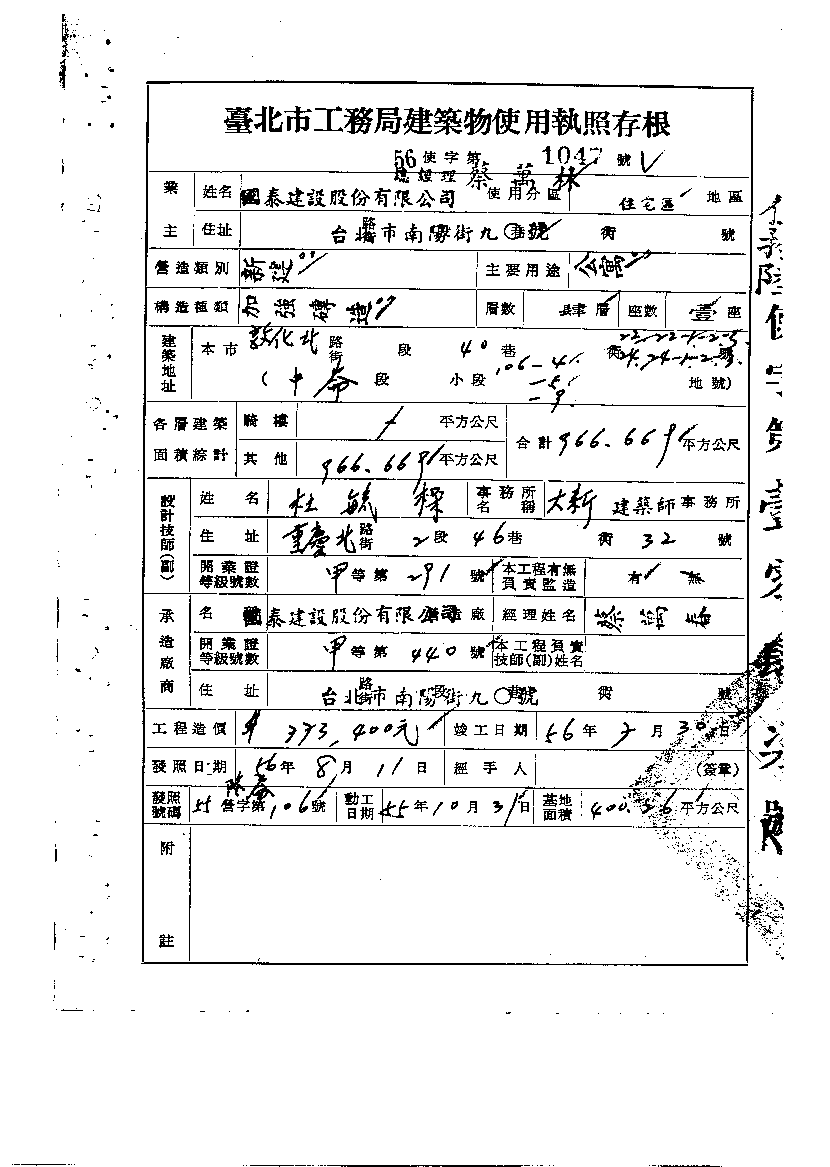 臺北市工務局建築物使用執照存根
56 使字第 1047 號
業主 姓名 國泰建設股份有限公司 總經理 蔡萬林 使用分區 住宅區 地區
住址 台北市南陽街九〇號 街 號
營造類別 新建 主要用途 公寓
構造種類 加強磚造 層數 肆層 座數 壹座
建築地址 本市 敦化北 路街 段 40 巷 街
(中崙段 小段 地號)
各層建築面積綜計 騎樓 平方公尺 合計 966.66 平方公尺
其他 966.66 平方公尺
設計技師(副) 姓名 杜毓 事務所名稱 大新 建築師事務所
住址 重慶北路街 2段 46巷 街 32 號
開業證等級號數 甲等第 291 號 本工程有無負責監造 有 無
承造廠商 名 國泰建設股份有限公司 營造廠 經理姓名 蔡萬
開業證等級號數 甲等第 440 號 本工程負責技師(副)姓名
住址 台北市南陽街九〇號 街 號
工程造價 $ 373,400元 竣工日期 56年 7月 30日
發照日期 56年 8月 11日 經手人 (簽章)
發照號碼 55 營字第 106 號 動工日期 55年10月31日 基地面積 400.26 平方公尺
附註